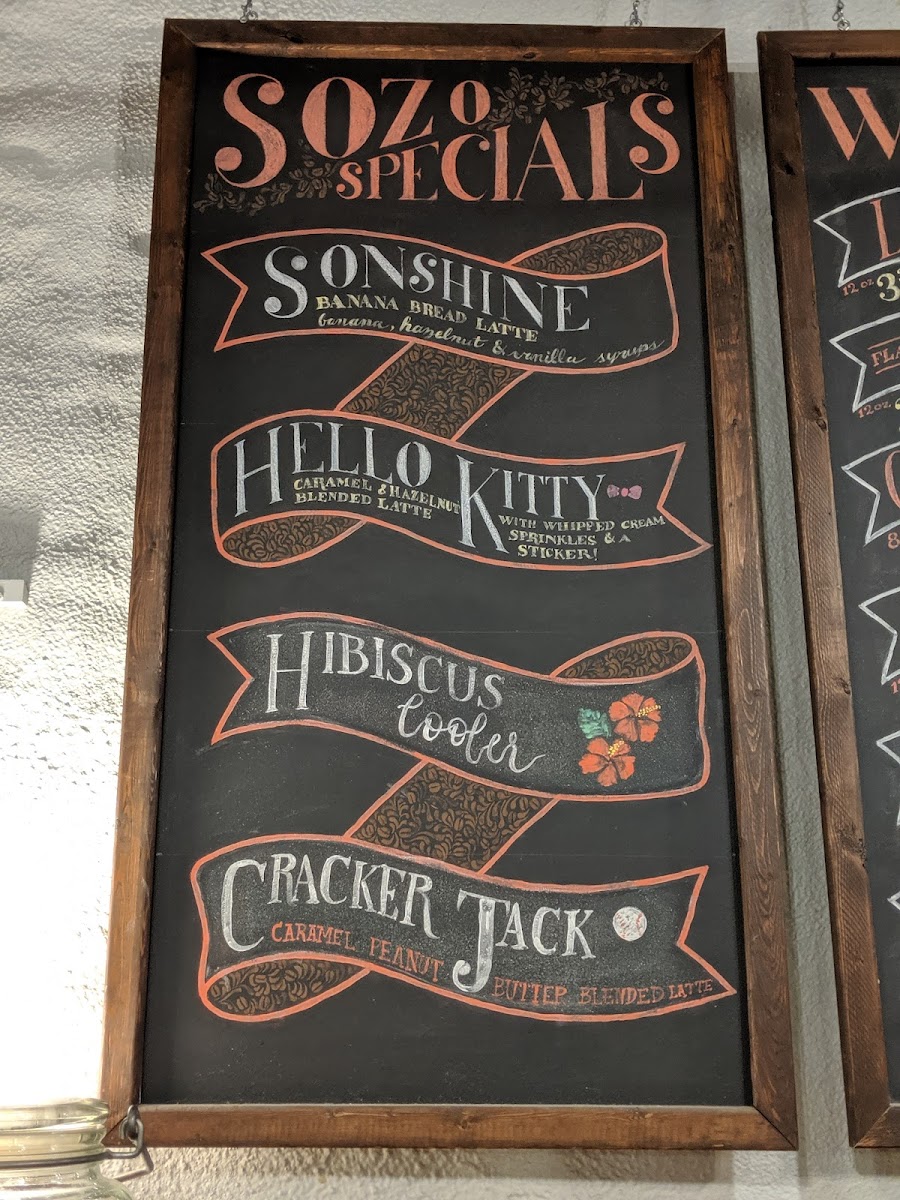 SOZO
SPECIALS
SONSHINE
BANANA BREAD LATTE
banana, hazelnut & vanilla syrups
HELLO KITTY
CARAMEL & HAZELNUT
BLENDED LATTE
WITH WHIPPED CREAM
SPRINKLES & A
STICKER!
HIBISCUS
Cooler
CRACKER JACK
CARAMEL PEANUT BUTTER BLENDED LATTE
W
L
12 oz
FLA
12 oz
8